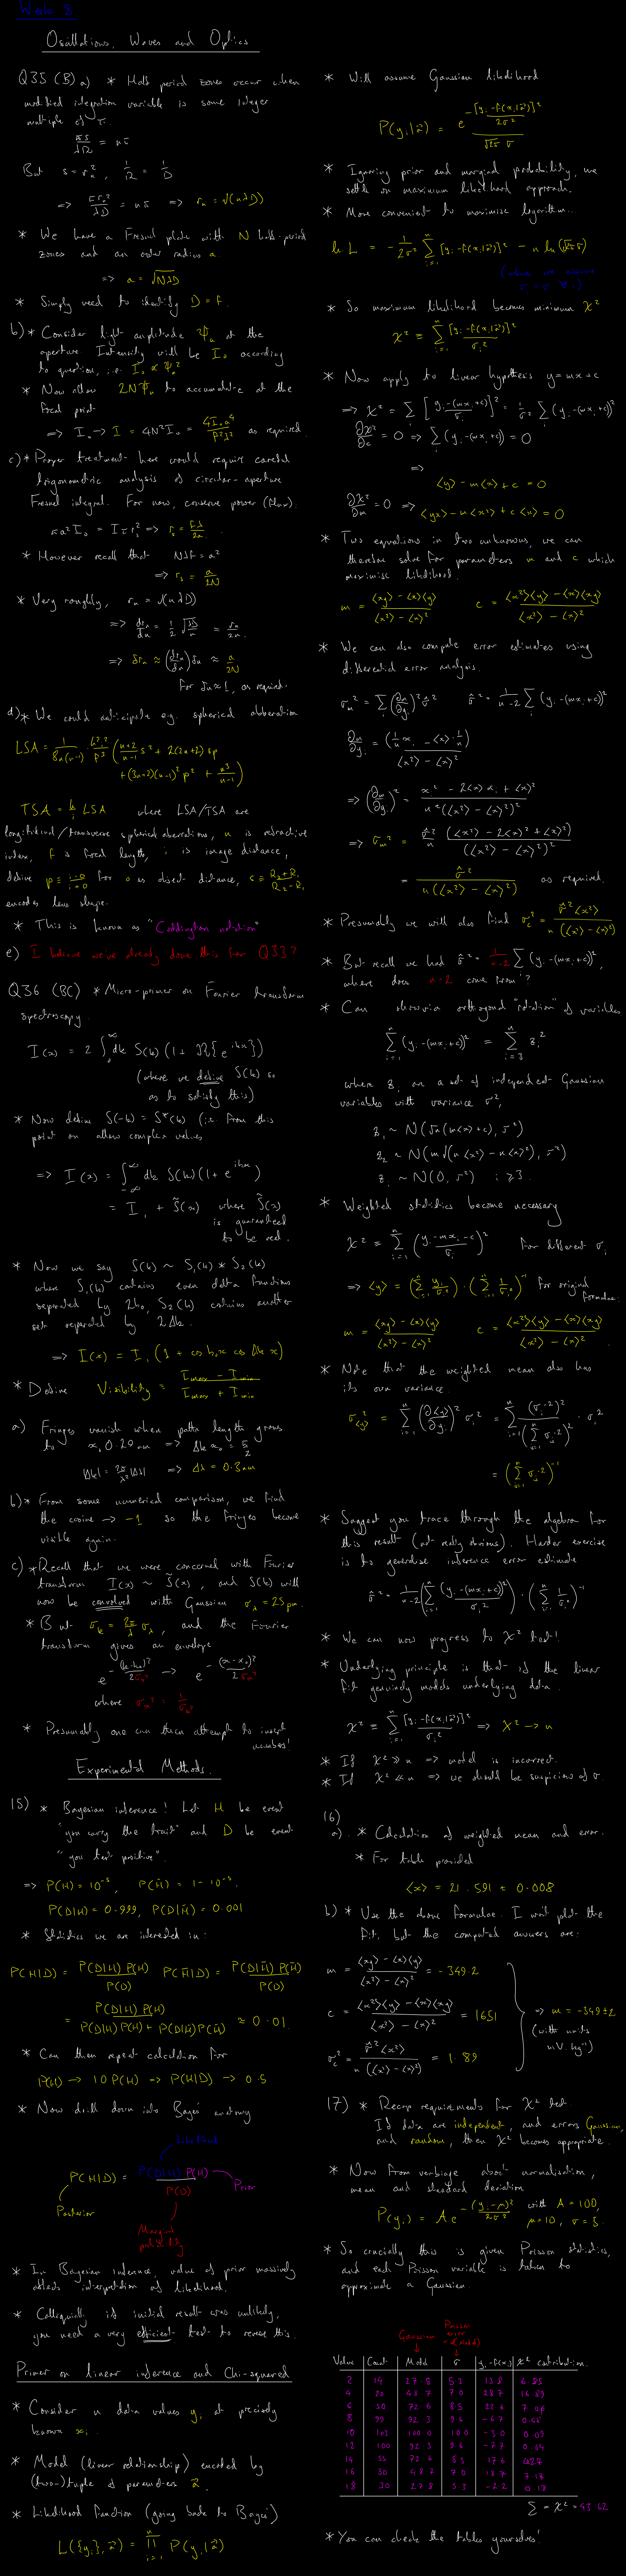 Week 3
Oscillations, Waves and Optics
Q35 (B) a) * Half period zones occur when
modified integration variable is some integer
multiple of π.
πs/λR = nπ
But s = r_n², 1/R = 1/D
=> π r_n²/λD = nπ => r_n = √(nλD)
* We have a Fresnel plate with N half-period
zones and an outer radius a.
=> a = √NλD
* Simply need to identify D = f.
b) * Consider light amplitude Ψ_u at the
aperture. Intensity will be I_0 according
to question, i.e. I_0 ∝ Ψ_u²
* Now allow 2NΨ_u to accumulate at the
focal point
=> I_0 → I = 4N²I_0 = 4I_0a⁴/f²λ² as required
c) * Proper treatment here would require careful
trigonometric analysis of circular-aperture
Fresnel integral. For now, conserve power (flow).
πa²I_0 = Iπr_s² => r_s = fλ/2a.
* However recall that Nλf = a²
=> r_s = a/2N
* Very roughly, r_n = √(nλD)
=> dr_n/dn = 1/2 √(λD/n) = r_n/2n
=> δr_n ≈ (dr_n/dn) δn ≈ a/2N
for δn ≈ 1, as required.
d) * We could anticipate e.g. spherical abberation
LSA = 1/8n(n-1) · h²/f³ (n+2/n-1 s² + 2(2n+2) sp
+ (3n+2)(n-1)² p² + n³/n-1)
TSA = h/i LSA where LSA/TSA are
longitudinal/transverse spherical aberrations, n is refractive
index, f is focal length, i is image distance,
define p ≡ i-o/i+o for o as object distance, s ≡ R_2+R_1/R_2-R_1
encodes lens shape.
* This is known as "Coddington notation"
e) I believe we've already done this for Q33?
Q36 (BC) * Micro-primer on Fourier transform
spectroscopy.
I(x) = 2 ∫_0^∞ dk S(k) (1 + ℜ{e^{ikx}})
(where we define S(k) so
as to satisfy this)
* Now define S(-k) = S*(k) (i.e. from this
point on allow complex values
=> I(x) = ∫_{-∞}^∞ dk S(k)(1 + e^{ikx})
= I_1 + S̃(x) where S̃(x)
is guaranteed
to be real.
* Now we say S(k) ~ S_1(k) * S_2(k)
where S_1(k) contains even delta functions
separated by 2k_0, S_2(k) contains another
set separated by 2Δk.
=> I(x) = I_1 (1 + cos k_0x cos Δk x)
* Define Visibility = I_max - I_min / I_max + I_min
a) Fringes vanish when path length grows
to x_0 0.29 mm => Δk x_0 = π/2
|Δk| = 2π/λ² |Δλ| => Δλ = 0.3nm
b) * From some numerical comparison, we find
the cosine → -1 so the fringes become
visible again.
c) * Recall that we were concerned with Fourier
transform I(x) ~ S̃(x), and S(k) will
now be convolved with Gaussian σ_λ = 25pm.
* But σ_k = 2π/λ² σ_λ, and the Fourier
transform gives an envelope
e^{-(k-k_0)²/2σ_k²} → e^{-(x-x_0)²/2σ_x²}
where σ_x² = 1/σ_k²
* Presumably one can then attempt to insert
numbers!
Experimental Methods.
15) * Bayesian inference! Let H be event
"you carry the trait" and D be event
"you test positive".
=> P(H) = 10⁻⁵, P(H̄) = 1 - 10⁻⁵.
P(D|H) = 0.999, P(D|H̄) = 0.001
* Statistics we are interested in:
P(H|D) = P(D|H) P(H)/P(D) P(H̄|D) = P(D|H̄) P(H̄)/P(D)
= P(D|H) P(H) / P(D|H)P(H) + P(D|H̄)P(H̄) ≈ 0.01.
* Can then repeat calculation for
P(H) → 10 P(H) => P(H|D) → 0.5
* Now drill down into Bayes' anatomy
Likelihood
P(H|D) = P(D|H) P(H) / P(D)
Prior
Posterior
Marginal
probability
* In Bayesian inference, value of prior massively
affects interpretation of likelihood.
* Colloquially if initial result was unlikely,
you need a very efficient test to reverse this.
Primer on linear inference and Chi-squared
* Consider n data values y_i at precisely
known x_i.
* Model (linear relationship) encoded by
(two-)tuple of parameters a⃗.
* Likelihood function (going back to Bayes)
L({y_i}, a⃗) = ∏_{i=1}^n P(y_i|a⃗)
* Will assume Gaussian likelihood
P(y_i|a⃗) = e^{-[y_i-f(x_i|a⃗)]²/2σ²} / √2π σ
* Ignoring prior and marginal probability, we
settle on maximum likelihood approach.
* More convenient to maximise logarithm...
ln L = -1/2σ² ∑_{i=1}^n [y_i-f(x_i|a⃗)]² - n ln(√2π σ)
* So maximum likelihood becomes minimum χ²
χ² = ∑_{i=1}^n [y_i-f(x_i|a⃗)]²/σ_i²
* Now apply to linear hypothesis y = mx + c
=> χ² = ∑_i [y_i-(mx_i+c)/σ_i]² = 1/σ² ∑_i (y_i-(mx_i+c))²
∂χ²/∂c = 0 => ∑_i (y_i-(mx_i+c)) = 0
=>
⟨y⟩ - m⟨x⟩ + c = 0
∂χ²/∂m = 0 => ⟨yx⟩ - m⟨x²⟩ + c⟨x⟩ = 0
* Two equations in two unknowns, we can
therefore solve for parameters m and c which
maximise likelihood.
m = ⟨xy⟩ - ⟨x⟩⟨y⟩ / ⟨x²⟩ - ⟨x⟩² c = ⟨x²⟩⟨y⟩ - ⟨x⟩⟨xy⟩ / ⟨x²⟩ - ⟨x⟩²
* We can also compute error estimates using
differential error analysis.
σ_m² = ∑_i (∂m/∂y_i)² σ̂² σ̂² = 1/n-2 ∑_i (y_i-(mx_i+c))²
∂m/∂y_i = (1/n x_i - ⟨x⟩·1/n) / ⟨x²⟩ - ⟨x⟩²
=> (∂m/∂y_i)² = x_i² - 2⟨x⟩x_i + ⟨x⟩² / n²(⟨x²⟩ - ⟨x⟩²)²
=> σ_m² = σ̂²/n (⟨x²⟩ - 2⟨x⟩² + ⟨x⟩²) / (⟨x²⟩ - ⟨x⟩²)²
= σ̂² / n(⟨x²⟩ - ⟨x⟩²) as required.
* Presumably we will also find σ_c² = σ̂²⟨x²⟩ / n(⟨x²⟩ - ⟨x⟩²)
* But recall we had σ̂² = 1/n-2 ∑ (y_i-(mx_i+c))²,
where does n-2 come from?
* Can show via orthogonal "rotation" of variables
∑_{i=1}^n (y_i-(mx_i+c))² = ∑_{i=3}^n z_i²
where z_i are a set of independent Gaussian
variables with variance σ²,
z_1 ~ N(√n(m⟨x⟩+c), σ²)
z_2 ~ N(m√(n⟨x²⟩ - n⟨x⟩²), σ²)
z_i ~ N(0, σ²) i ≥ 3.
* Weighted statistics become necessary
χ² = ∑_{i=1}^n (y_i-mx_i-c/σ_i)² for different σ_i
=> ⟨y⟩ = (∑_{i=1}^n y_i/σ_i²) · (∑_{i=1}^n 1/σ_i²)⁻¹ for original
formulae.
m = ⟨xy⟩ - ⟨x⟩⟨y⟩ / ⟨x²⟩ - ⟨x⟩² c = ⟨x²⟩⟨y⟩ - ⟨x⟩⟨xy⟩ / ⟨x²⟩ - ⟨x⟩²
* Note that the weighted mean also has
its own variance.
σ_⟨y⟩² = ∑_{i=1}^n (∂⟨y⟩/∂y_i)² σ_i² = ∑_{i=1}^n (σ_i⁻²)² / (∑_{j=1}^n σ_j⁻²)² · σ_i²
= (∑_{j=1}^n σ_j⁻²)⁻¹
* Suggest you trace through the algebra for
this result (not really obvious). Harder exercise
is to generalise inference error estimate
σ̂² = 1/n-2 (∑_{i=1}^n (y_i-(mx_i+c))²/σ_i²) · (∑_{i=1}^n 1/σ_i²)⁻¹
* We can now progress to χ² test!
* Underlying principle is that if the linear
fit genuinely models underlying data.
χ² = ∑_{i=1}^n [y_i-f(x_i|a⃗)]²/σ_i² => χ² → n
* If χ² ≫ n => model is incorrect.
* If χ² ≪ n => we should be suspicious of σ.
16)
a) * Calculation of weighted mean and error.
* For table provided
⟨x⟩ = 21.591 ± 0.008
b) * Use the above formulae. I won't plot the
fit, but the computed answers are:
m = ⟨xy⟩ - ⟨x⟩⟨y⟩ / ⟨x²⟩ - ⟨x⟩² = -349.2
c = ⟨x²⟩⟨y⟩ - ⟨x⟩⟨xy⟩ / ⟨x²⟩ - ⟨x⟩² = 1651
σ_c² = σ̂²⟨x²⟩ / n(⟨x²⟩ - ⟨x⟩²) = 1.89
=> m = -349±2
(with units
mV kg⁻¹)
17) * Recap requirements for χ² test.
If data are independent, and errors Gaussian,
and random, then χ² becomes appropriate.
* Now from verbiage about normalisation,
mean and standard deviation
P(y_i) = A e^{-(y_i-μ)²/2σ²} with A = 100,
μ = 10, σ = 5.
* So crucially this is given Poisson statistics,
and each Poisson variable is taken to
approximate a Gaussian.
Gaussian Poisson
error
Value Count Model σ y_i-f(x_i) χ² contribution
2 14 27.8 5.3
4 20 48.7 7.0 28.7 16.89
6 50 72.6 8.5 22.6 7.06
8 99 92.3 9.6 -6.7 0.48
10 103 100.0 10.0 -3.0 0.09
12 100 92.3 9.6 -7.7 0.64
14 55 72.6 8.5 17.6 4.27
16 30 48.7 7.0 18.7 7.17
18 30 27.8 5.3 -2.2 0.17
∑ = χ² = 43.62
* You can check the tables yourselves!